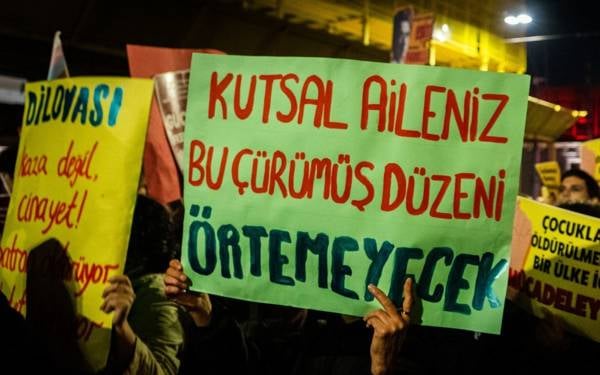 DİLOVASI
kaza değil,
cinayet!
KUTSAL AİLENİZ
BU ÇÜRÜMÜŞ DÜZENİ
ÖRTEMEYECEK
ÇOCUKLA
ÖLDÜRÜLME
BİR ÜLKE İÇ
MÜCADELEY